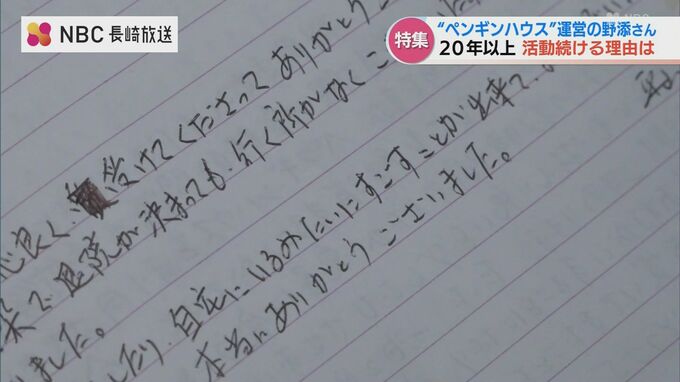 NBC 長崎放送
特集
“ペンギンハウス”運営の野添さん
20年以上 活動続ける理由は
良く、受けてくださって ありがとう
で退院が決まっても、行く所がなく
ました。
たり、自宅にいるみたいにすごすことが出来て
本当にありがとうございました。